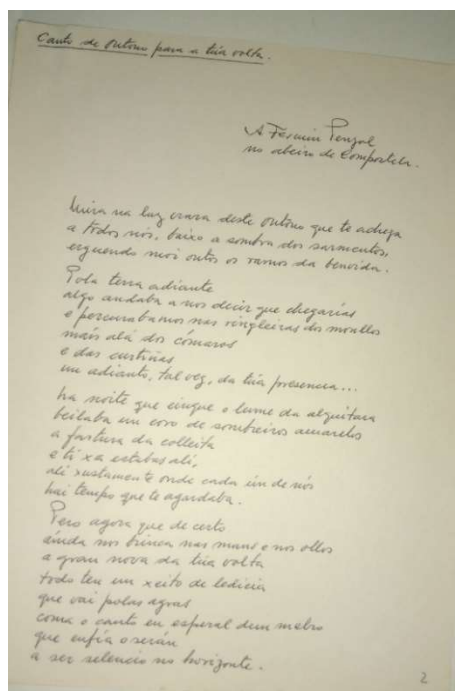 Canto de outono para a túa volta.
A Fermín Penzol
no abeiro de Compostela.
na luz crara deste outono que te achega
a todos nós, baixo a sombra dos sarmentos,
erguendo moi outos os ramos da benvida.
Pola terra adiante
algo andaba a nos decir que chegarías
e percurabamos nas ringleiras dos monllos
máis alá dos cómaros
e das curtiñas
un adianto, tal vez, da túa presencia...
na noite que cingue o lume da alquitara
beilaba un coro de sombreiros amarelos
a fartura da colleita
e ti xa estabas alí,
alí xustamente onde cada ún de nós
hai tempo que te agardaba.
Pero agora que de certo
aínda nos brinca nas mans e nos ollos
a gran nova da túa volta
todo ten un xeito de ledicia
que vai polas agras
coma o canto en esperal dun melro
que enfía o serán
a ser selencio no horizonte.
2